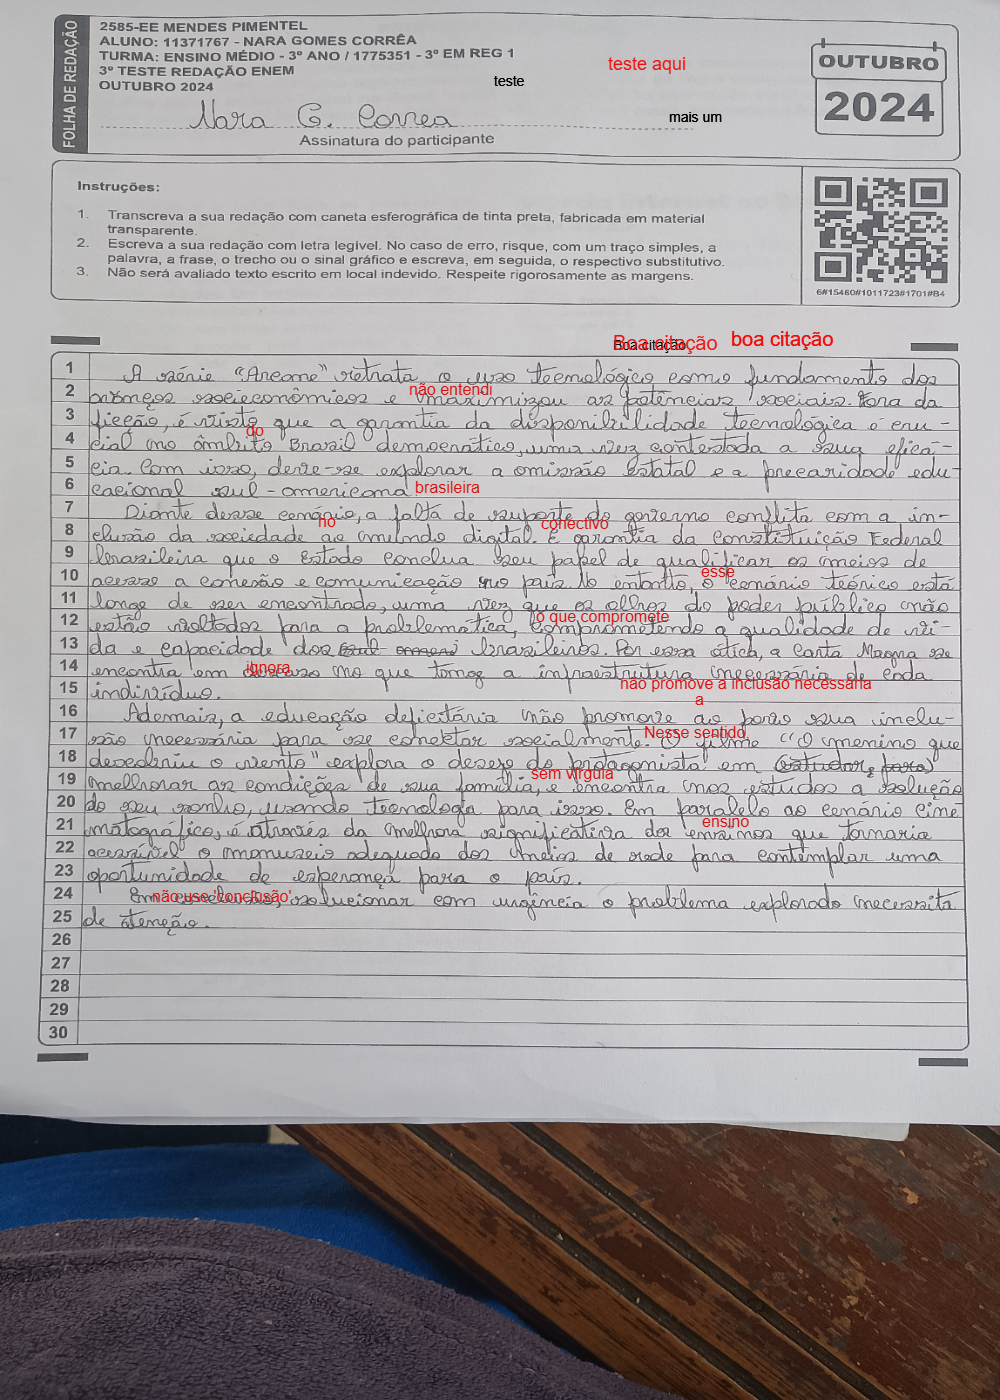 FOLHA DE REDAÇÃO
2585-EE MENDES PIMENTEL
ALUNO: 11371767 - NARA GOMES CORRÊA
TURMA: ENSINO MÉDIO - 3º ANO / 1775351 - 3º EM REG 1
3º TESTE REDAÇÃO ENEM
OUTUBRO 2024
teste
teste aqui
mais um
Nara G. Correa
Assinatura do participante
OUTUBRO
2024
Instruções:
1. Transcreva a sua redação com caneta esferográfica de tinta preta, fabricada em material
transparente.
2. Escreva a sua redação com letra legível. No caso de erro, risque, com um traço simples, a
palavra, a frase, o trecho ou o sinal gráfico e escreva, em seguida, o respectivo substitutivo.
3. Não será avaliado texto escrito em local indevido. Respeite rigorosamente as margens.
6#15460#1011723#1701#B4
Boa citação
Boa citação
boa citação
1 A série "Arcane" retrata o uso tecnológico como fundamento dos
não entendi
2 avanços socieconômicos e maximizou as potências sociais. Fora da
3 ficção, é visto que a garantia da disponibilidade tecnológica é cru-
do
4 cial no âmbito Brasil democrático, uma vez contestada a sua eficá-
5 cia. Com isso, deve-se explorar a omissão estatal e a precariedade edu-
6 cacional sul-americana
brasileira
7 Diante desse cenário, a falta de suporte do governo conflita com a in-
no
conectivo
8 clusão da sociedade ao mundo digital. É garantia da Constituição Federal
9 brasileira que o Estado conclua seu papel de qualificar os meios de
esse
10 acesso a conexão e comunicação no país. No entanto, o cenário teórico está
11 longe de ser encontrado, uma vez que os olhos do poder público não
o que compromete
12 estão voltados para a problemática, comprometendo a qualidade de vi-
13 da e capacidade dos brasileiros. Por essa ótica, a Carta Magna se
ignora
14 encontra em descaso no que tange a infraestrutura necessária de cada
não promove a inclusão necessária
15 indivíduo.
a
16 Ademais, a educação deficitária não promove ao povo sua inclu-
Nesse sentido,
17 são necessária para se conectar socialmente. O filme "O menino que
18 descobriu o vento" explora o desejo do protagonista em (estudar, para)
sem vírgula
19 melhorar as condições de sua família, e encontra nos estudos a solução
20 do seu sonho, usando tecnologia para isso. Em paralelo ao cenário cine
ensino
21 matográfico, é através da melhora significativa dos ensinos que tornaria
22 acessível o manuseio adequado dos meios de rede para contemplar uma
23 oportunidade de esperança para o país.
não use 'conclusão'
24 Em conclusão, solucionar com urgência o problema explorado necessita
25 de atenção.
26
27
28
29
30